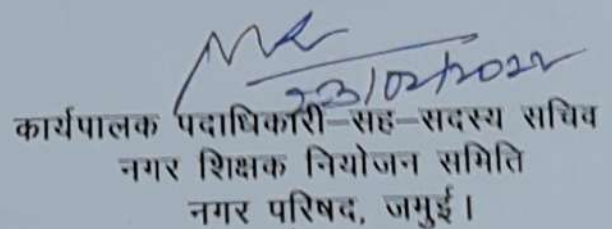 23/02/2022
कार्यपालक पदाधिकारी–सह–सदस्य सचिव
नगर शिक्षक नियोजन समिति
नगर परिषद, जमुई।